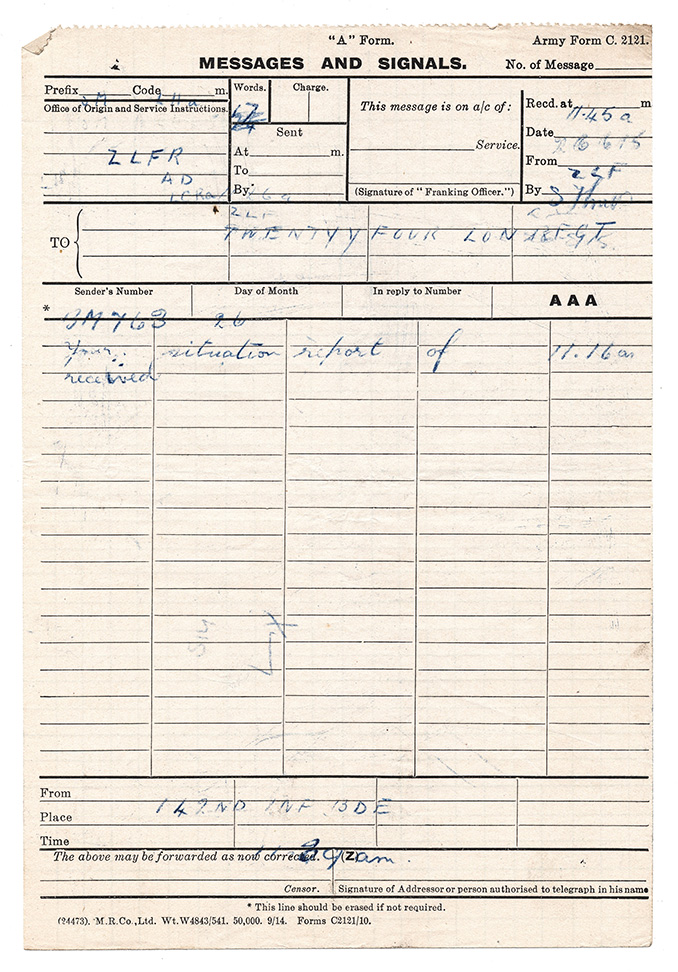 "A" Form. Army Form C. 2121.
MESSAGES AND SIGNALS. No. of Message
Prefix SM Code LHa m. Words. Charge.
Office of Origin and Service Instructions. This message is on a/c of: Recd. at 11.45a m
Sent Date 26.6.15
ZLFR At m. Service. From ZLF
AD To
By (Signature of "Franking Officer.") By
TO ZLF
TWENTY FOUR LON REGT
Sender's Number Day of Month In reply to Number AAA
* BM763 26
Your situation report of 11.16am
received
From
Place 142ND INF BDE
Time
The above may be forwarded as now corrected. (Z) am.
Censor. Signature of Addressor or person authorised to telegraph in his name
* This line should be erased if not required.
(24473). M.R.Co.,Ltd. Wt.W4843/541. 50,000. 9/14. Forms C2121/10.